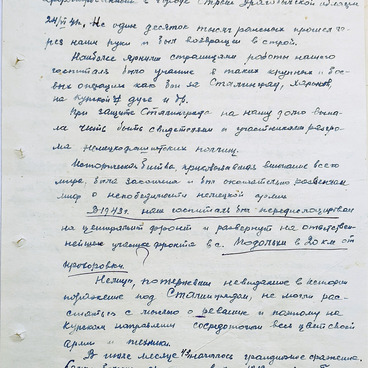 в городе Стрые Дрогобычской области
24/III 44. Не один десяток тысяч раненых прошел че-
рез наши руки и был возвращен в строй.
Наиболее яркими страницами работы нашего
госпиталя было участие в таких крупных и бое-
вых операциях как бои за Сталинград, Харьков,
на Курской дуге и др.
При защите Сталинграда на нашу долю выпа-
ла честь быть свидетелями и участниками разгро-
ма немецко-фашистских полчищ.
Историческая битва, приковавшая внимание всего
мира, была закончена и был окончательно развенчан
миф о непобедимости немецкой армии
В 1943 г. наш госпиталь был передислоцирован
на центральный фронт и развернут на ответствен-
нейшем участке фронта в с. в 20 км от
прохоровки.
Немцы, потерпевши невиданное в истории
поражение под Сталинградом, не могли рас-
статься с мыслью о реванше и поэтому на
Курском направлении сосредоточили весь цвет своей
армии и техники.
В июле месяце 43 началось грандиозное сражение.